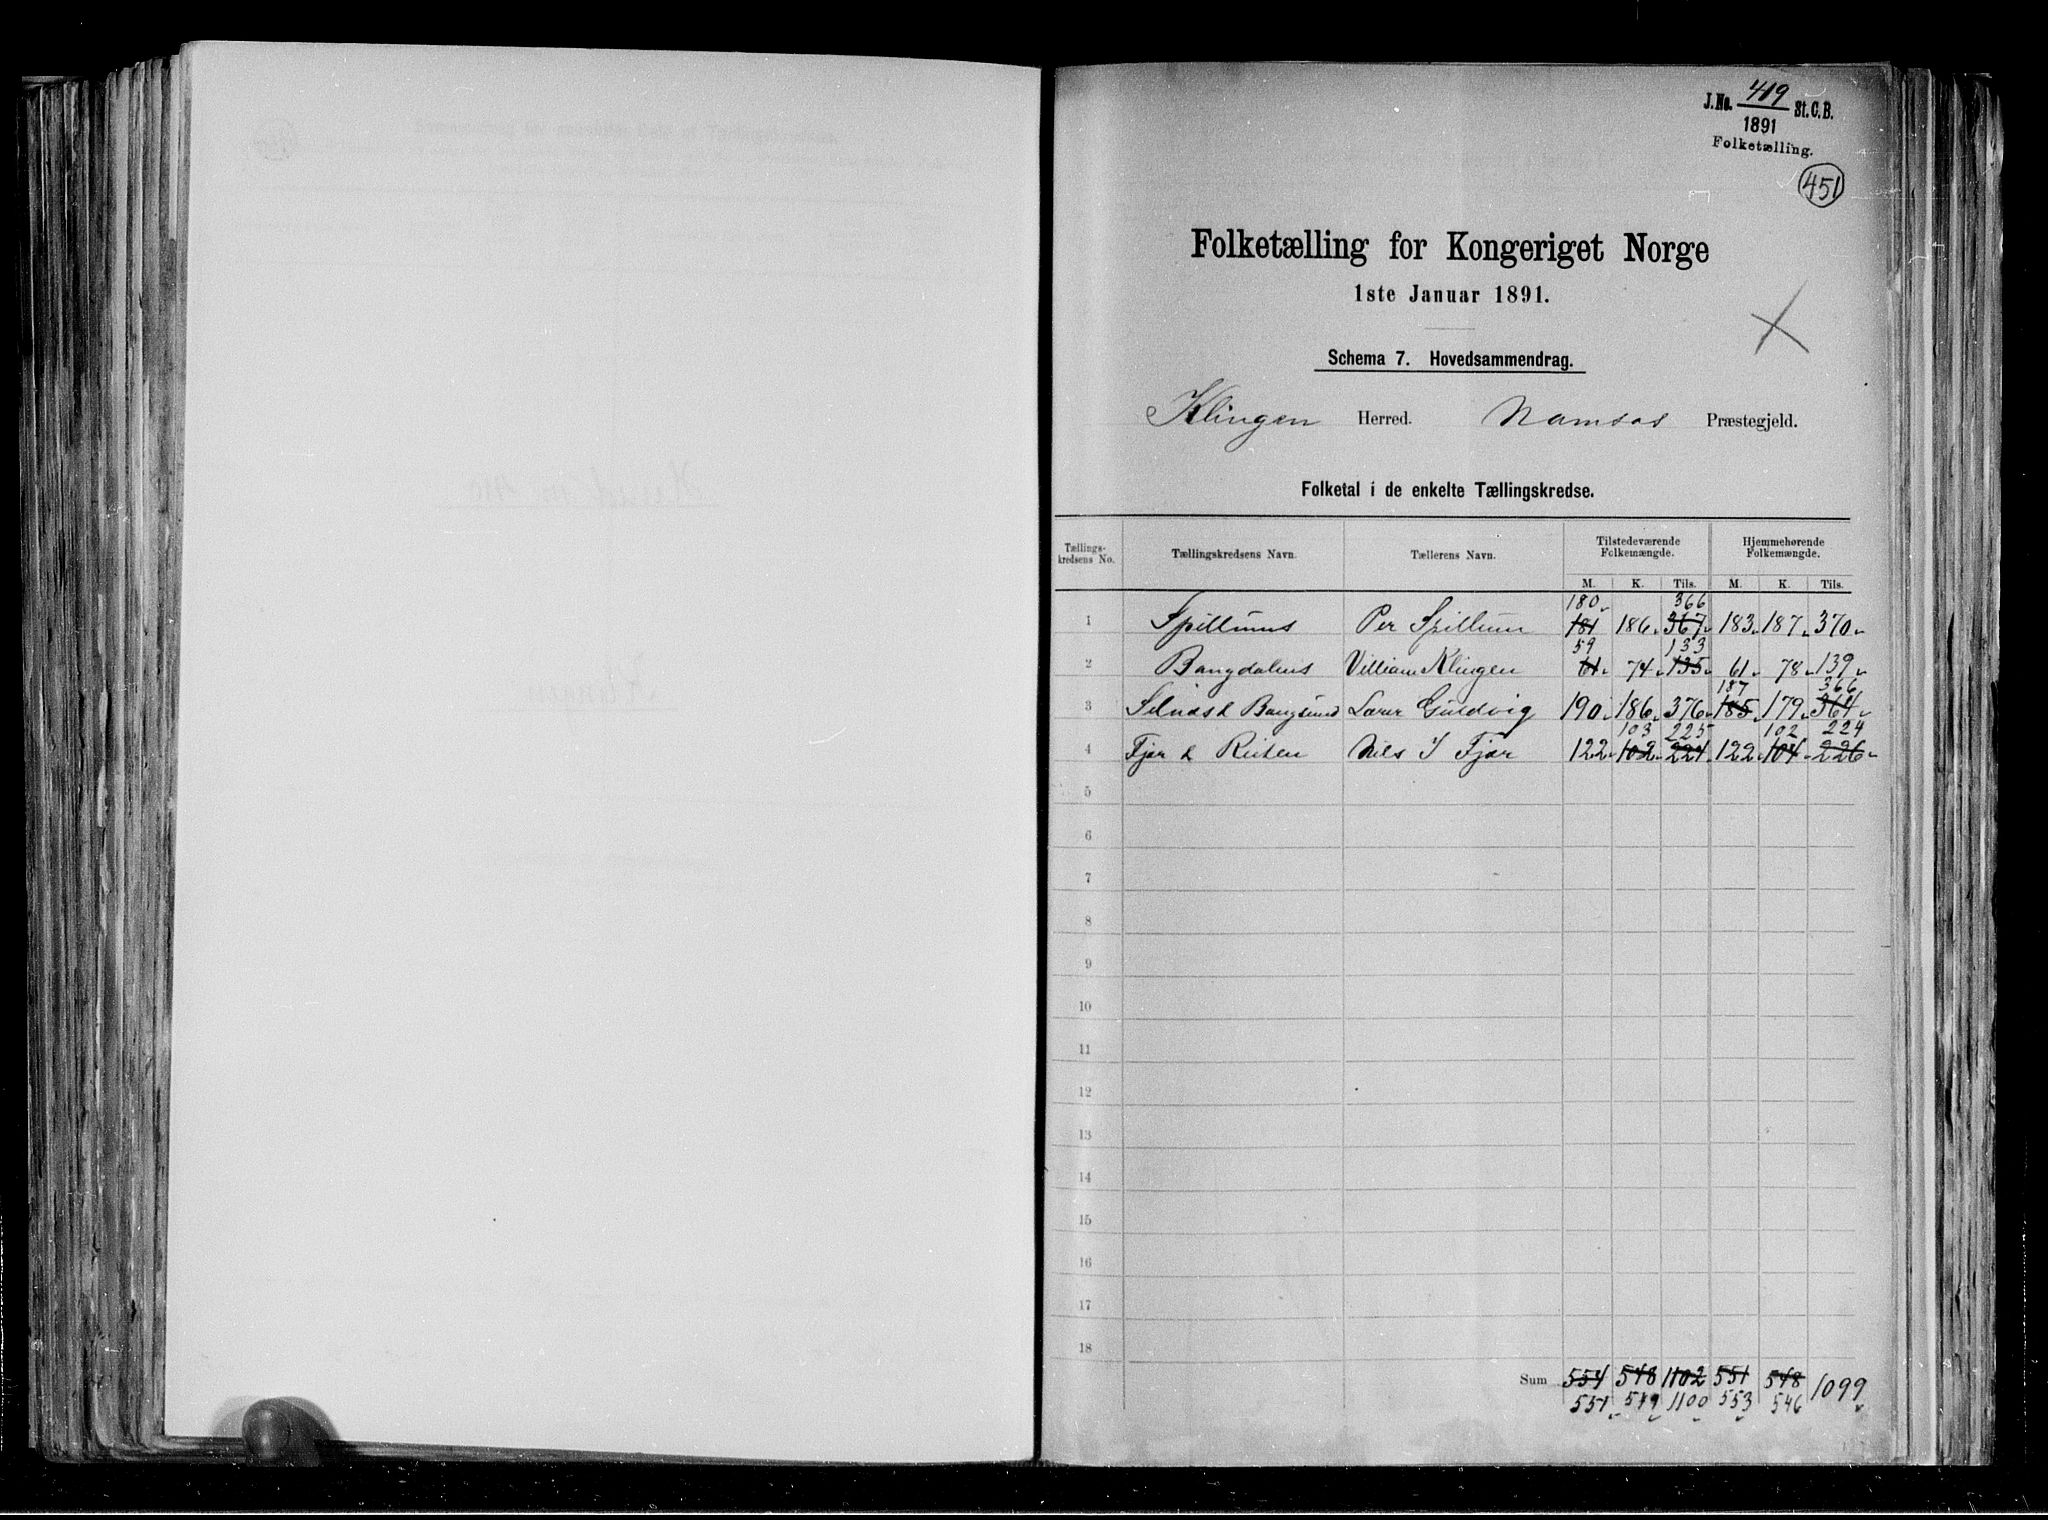 J.No. 419 St.C.B.
1891
Folketælling.
451
Folketælling for Kongeriget Norge
1ste Januar 1891.
Schema 7. Hovedsammendrag.
Klingen Herred. Namsos Præstegjeld.
Folketal i de enkelte Tællingskredse.
Tællings-kredsens No. Tællingskredsens Navn. Tællerens Navn. Tilstedeværende Folkemængde. Hjemmehørende Folkemængde.
M. K. Tils. M. K. Tils.
180 366
1 Spillums Per Spillum 181 186 367 183 187 370
59 133
2 Bangdalens Villiam Klingen 61 74 135 61 78 139
187 366
3 Selnæs & Bangsund Lærer Guldvig 190 186 376 185 179 364
103 225 102 224
4 Fjær & Reiten Nils J Fjær 122 102 224 122 104 226
5
6
7
8
9
10
11
12
13
14
15
16
17
18
Sum 554 548 1102 551 548 1099
551 549 1100 553 546